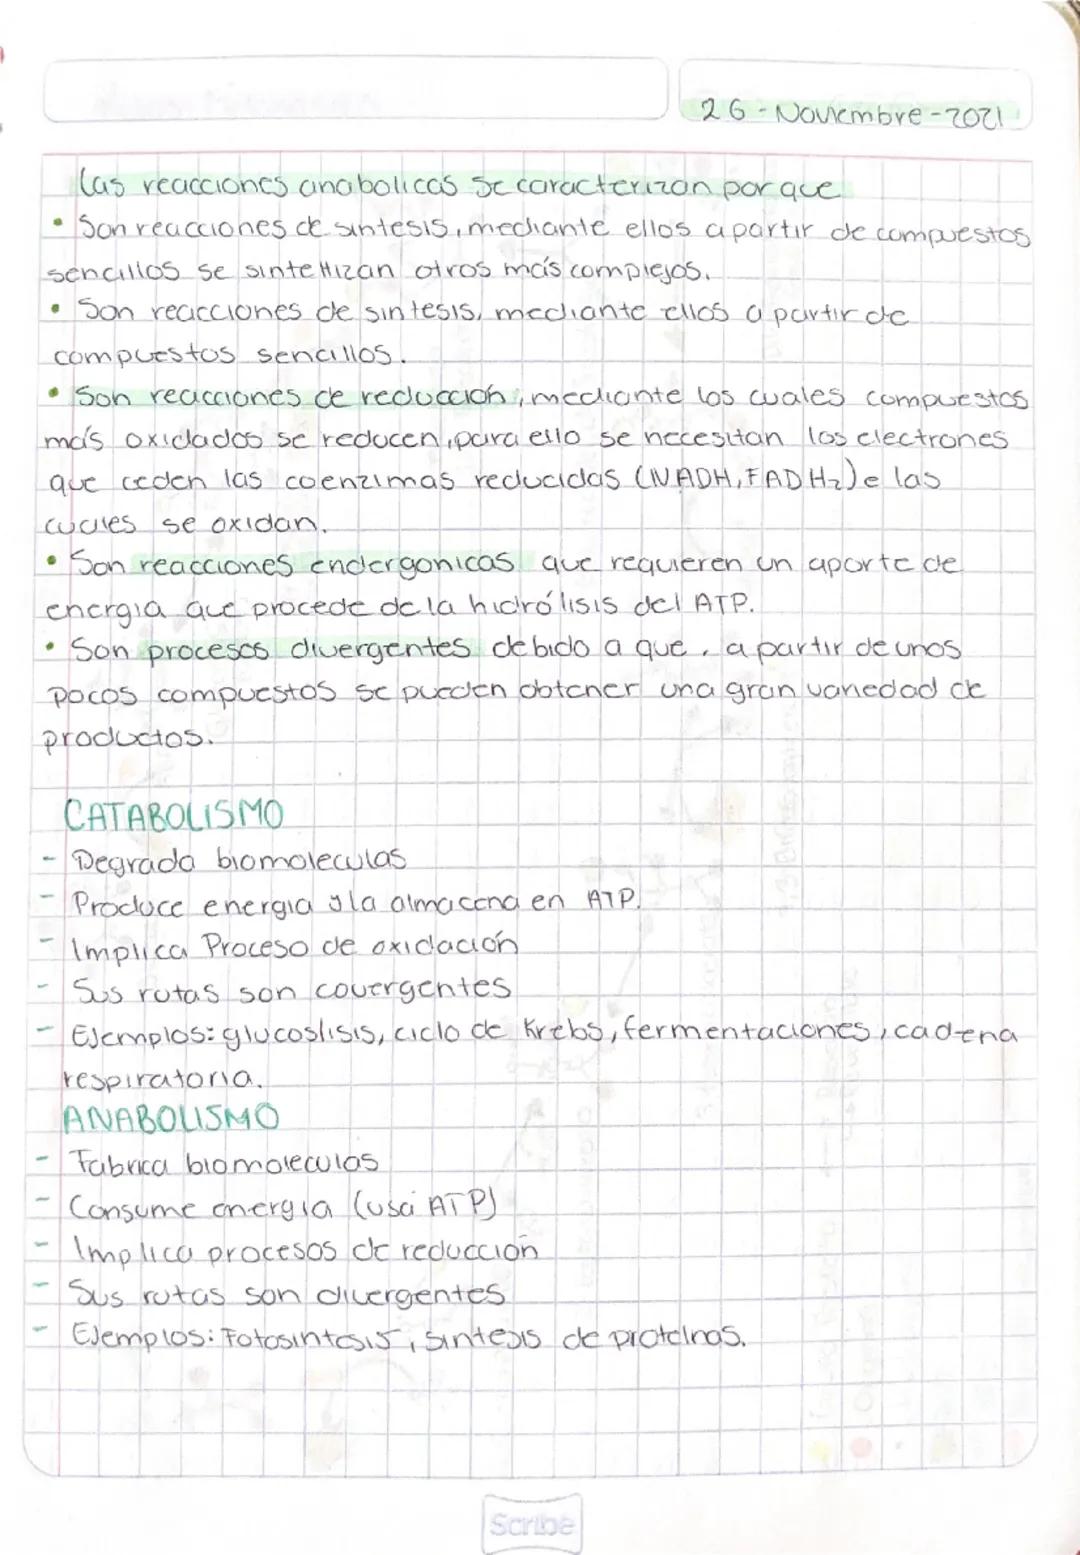 26-Noviembre-2021
Las reacciones anabolicas se caracterizan por que
• Son reacciones de sintesis, mediante ellos a partir de compuestos
sencillos se sintetizan otros más complejos.
• Son reacciones de sintesis, mediante ellos a partir de
compuestos sencillos.
• Son reacciones de reducción, mediante los cuales compuestos
más oxidados se reducen, para ello se necesitan los electrones
que ceden las coenzimas reducidas (NADH, FADH₂) e las
cuales se oxidan.
• Son reacciones endergonicas que requieren un aporte de
energia que procede de la hidrólisis del ATP.
• Son procesos divergentes debido a que, a partir de unos
pocos compuestos se pueden obtener una gran variedad de
productos.
CATABOLISMO
- Degrada biomoleculas
- Produce energia y la almacena en ATP.
- Implica Proceso de oxidación
- Sus rutas son covergentes
- Ejemplos: glucoslisis, ciclo de Krebs, fermentaciones, cadena
respiratoria.
ANABOLISMO
- Fabrica biomoleculas
- Consume energia (usa ATP)
- Implica procesos de reducción
- Sus rutas son divergentes
- Ejemplos: Fotosintesis, sintesis de proteinas.
Scribe